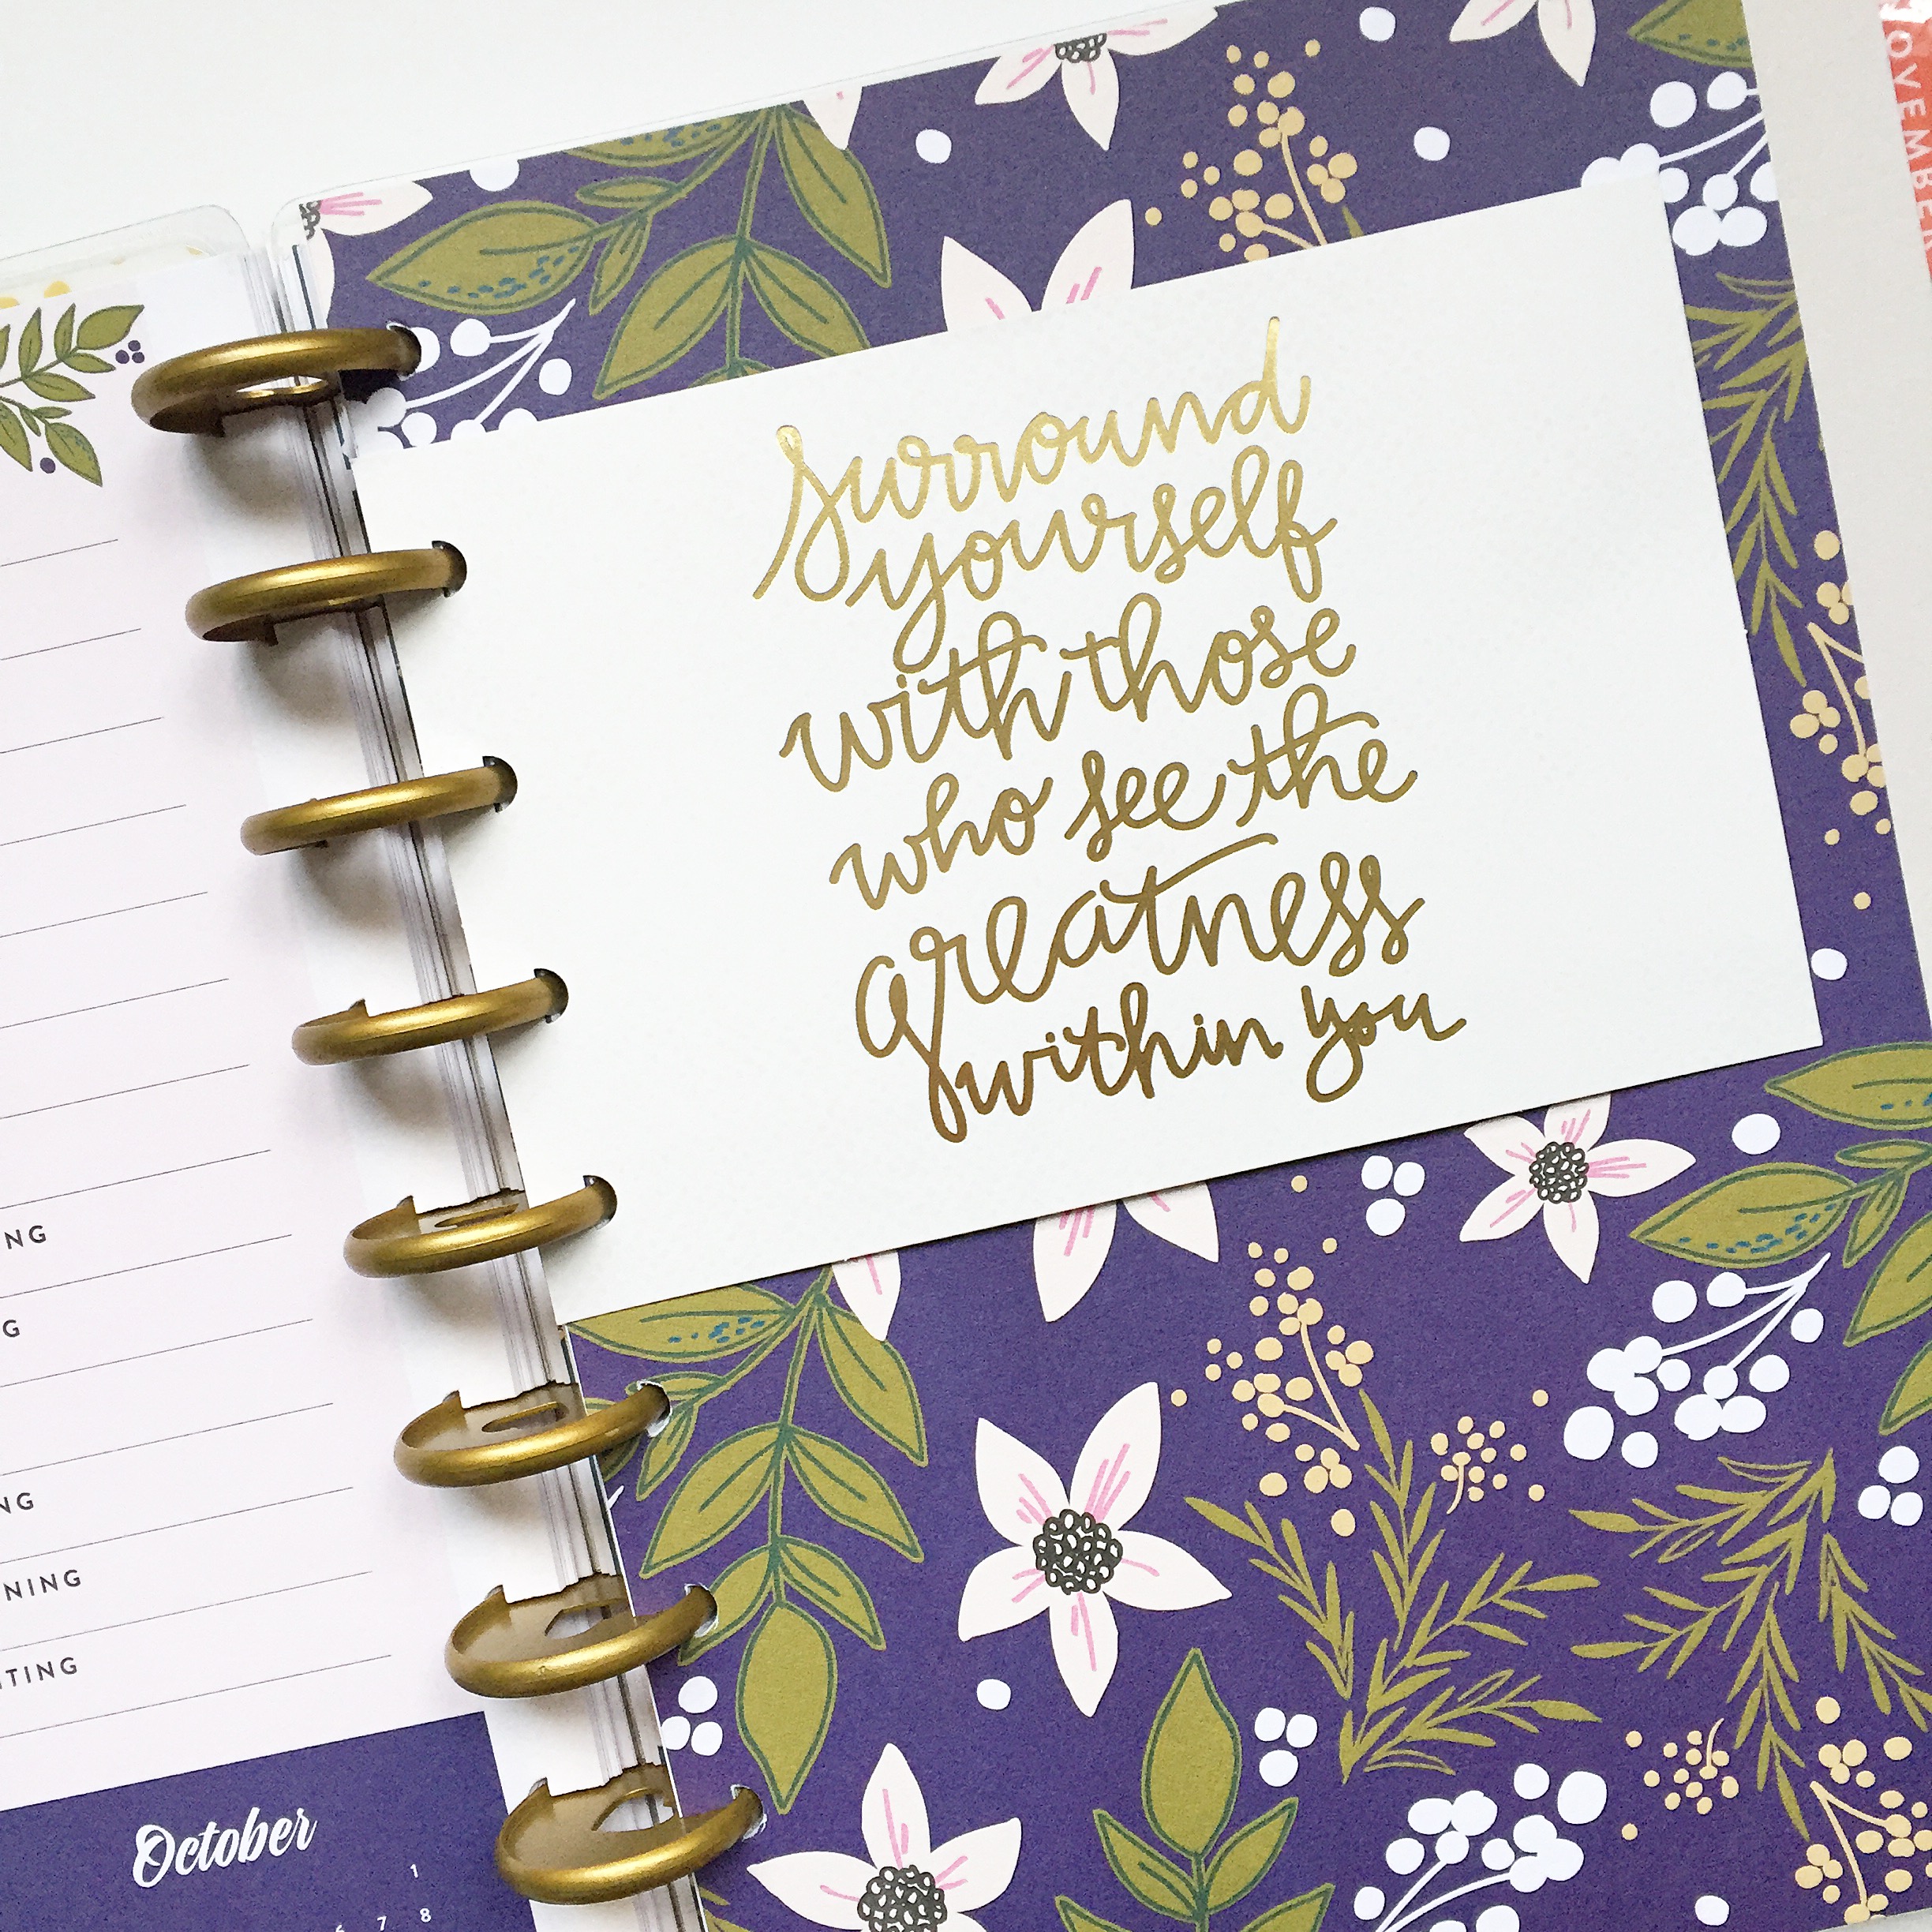 Surround
yourself
with those
who see the
greatness
within you
NG
G
NG
NING
TING
October
1
6 7 8
OVEMBE